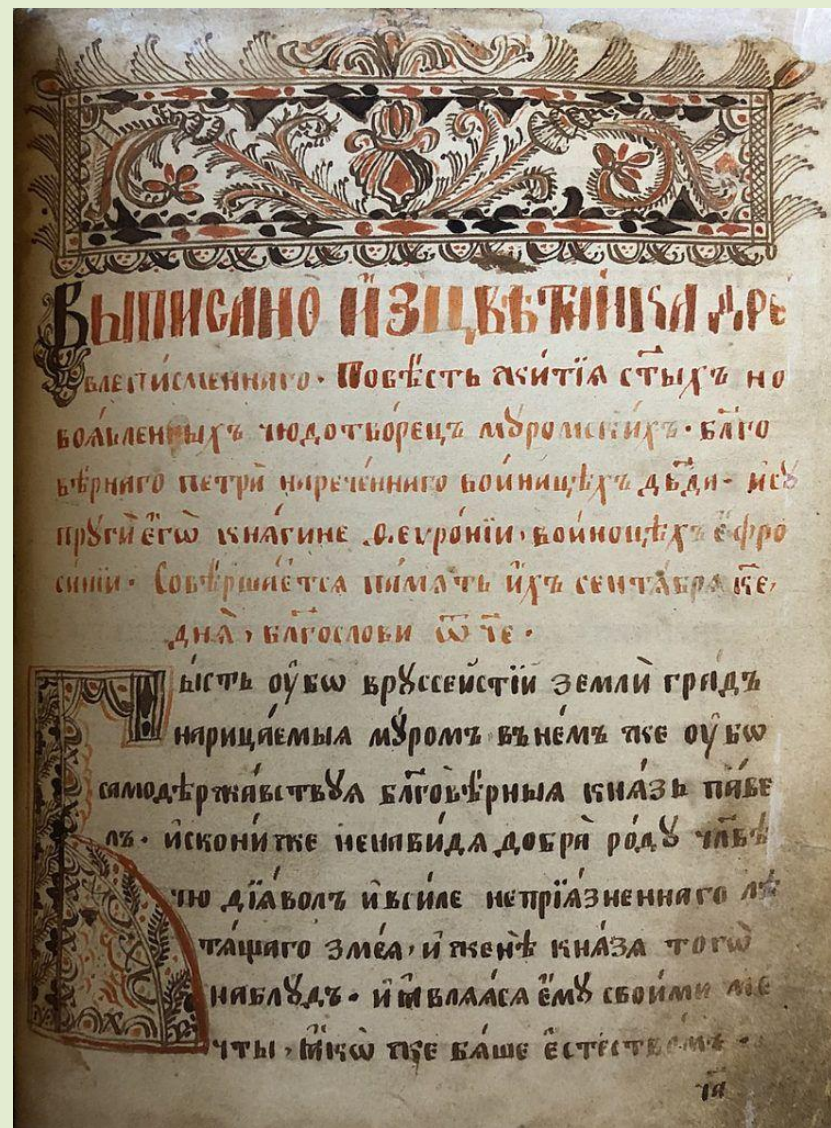 Выписано и҆з цвѣтника дре
влепи́сменнаго. По́вѣсть жити́їѧ ст҃ы́хъ но
воѧвле́нныхъ чюдотво́рецъ мꙋ́ромскихъ. бл҃го
вѣ́рнаго петра̀ нарече́ннаго во и҆ноцѣ́хъ дв҃да. и҆ сꙋ
прꙋги̑ є҆гѡ̀ кнѧги́не ѳ.евро́нїи, во и҆ноцѣ́хъ є҆фро
си́нїи. Соверша́етсѧ па́мѧть и҆́хъ сентѧ́брѧ к҃е,
днѧ̀, бл҃гослови ѿ ч҃е.
Бы́сть ᲂу҆́бѡ в рꙋссе́йстїй землѝ гра́дъ
нарица́емыѧ мꙋ́ромъ в не́мъ же ᲂу҆́бѡ
самодержа́вствꙋѧ бл҃говѣ́рныѧ кнѧ́зь па́ве
лъ. и҆скони́ же ненави́дѧ добра̀ ро́дꙋ чл҃вѣ
чю дїѧ́волъ и҆ всиле непрїѧ́зненнаго лѣ
та́щаго змеѧ, и҆ женѣ̀ кнѧ́зѧ тогѡ̀
на блꙋ́дъ. и҆ ꙗ҆влѧ́ѧсѧ є҆мꙋ̀ свои́ми ме
чты̀, ꙗ҆́кѡ же бѧ́ше є҆стество́мъ.